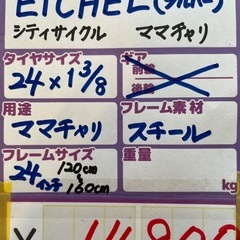 EICHEL(シルバー)
シティサイクル ママチャリ
タイヤサイズ ギア
24×1 3/8 前輪
後輪
用途 フレーム素材
ママチャリ スチール
フレームサイズ 重量
24インチ 120cm
~160cm kg
¥14,800